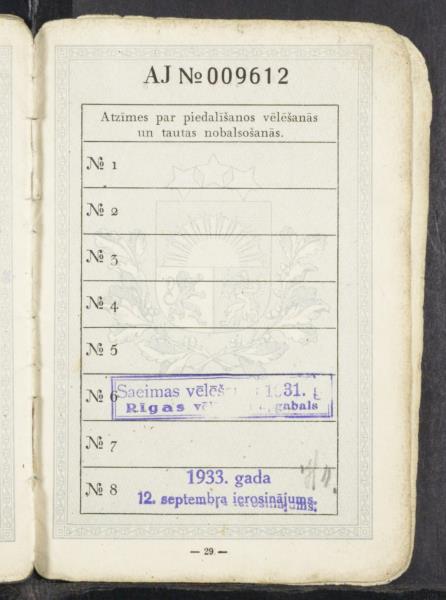 AJ № 009612
Atzīmes par piedalīšanos vēlēšanās
un tautas nobalsošanās.
№ 1
№ 2
№ 3
№ 4
№ 5
№ 6
Saeimas 1931. g
Rīgas gabals
№ 7
№ 8
1933. gada
12. septembra ierosinājums.
— 29 —